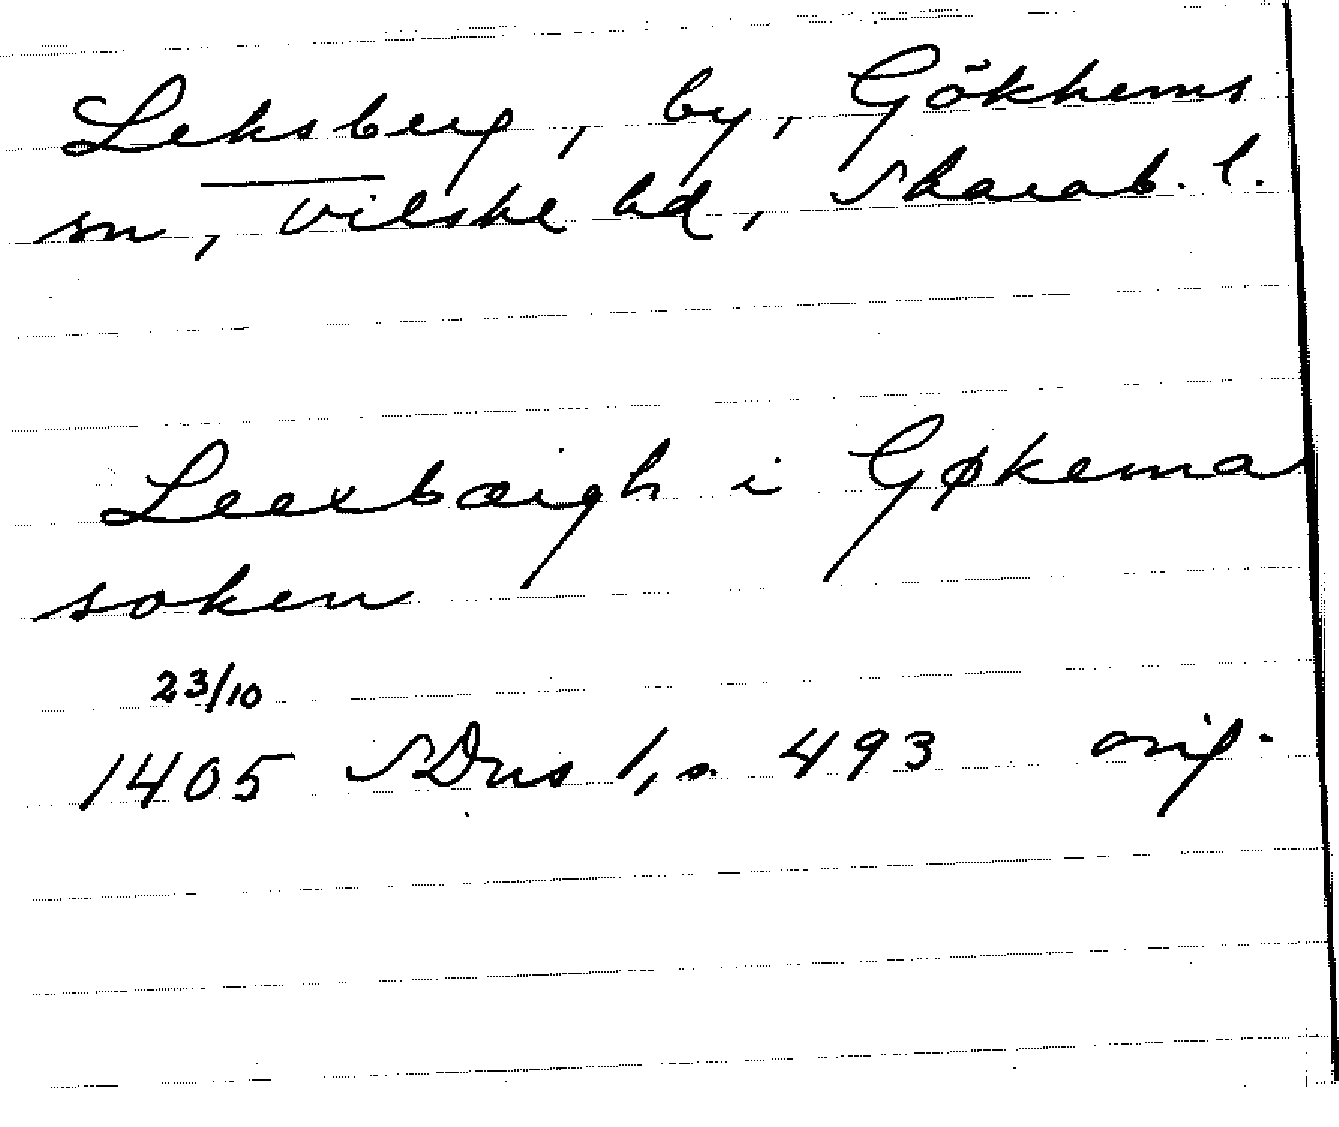 Leksberg, by, Gökhems
sn, Vilske hd, Skarab. l.
Leexbærgh i Gøkema
soken
23/10
1405 SDns 1, s. 493 orig.